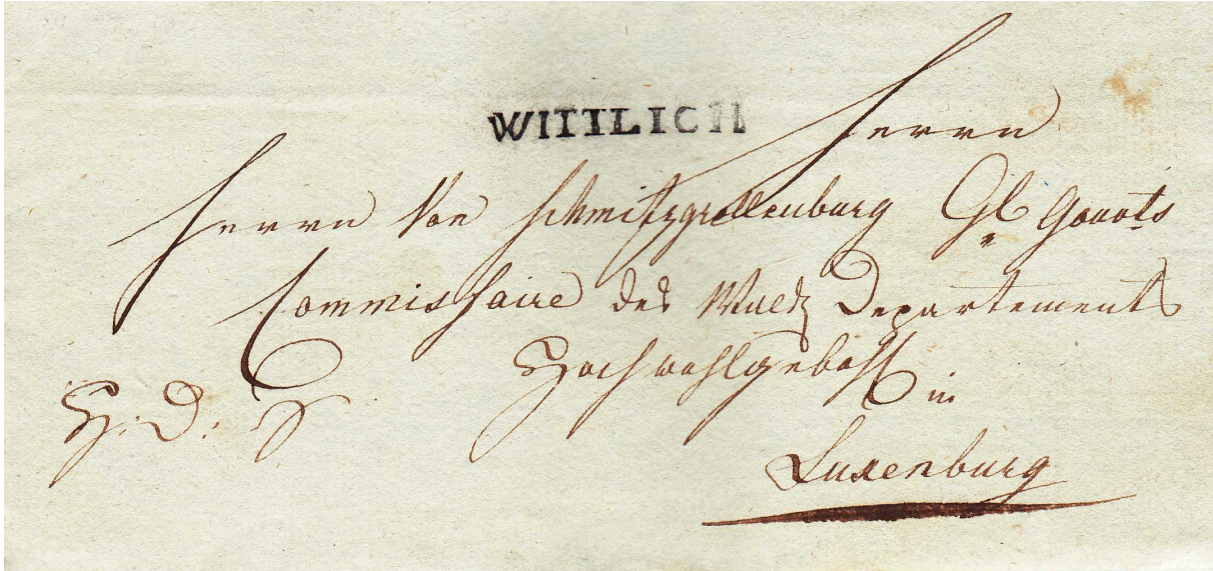 WITTLICH
Herrn
Herrn Von Schmitzgrollenburg Gl Gouvts
Commissaire des Departements
Hochwohlgebohr in
Luxenburg
H: D: S